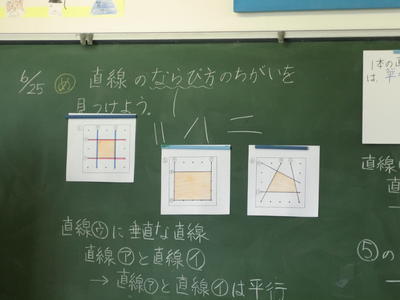 6/25 め 直線のならび方のちがいを
見つけよう。
直線㋒に垂直な直線
直線㋐と直線㋑
→ 直線㋐と直線㋑は平行
1本の直
は、
直線
直
⑤の